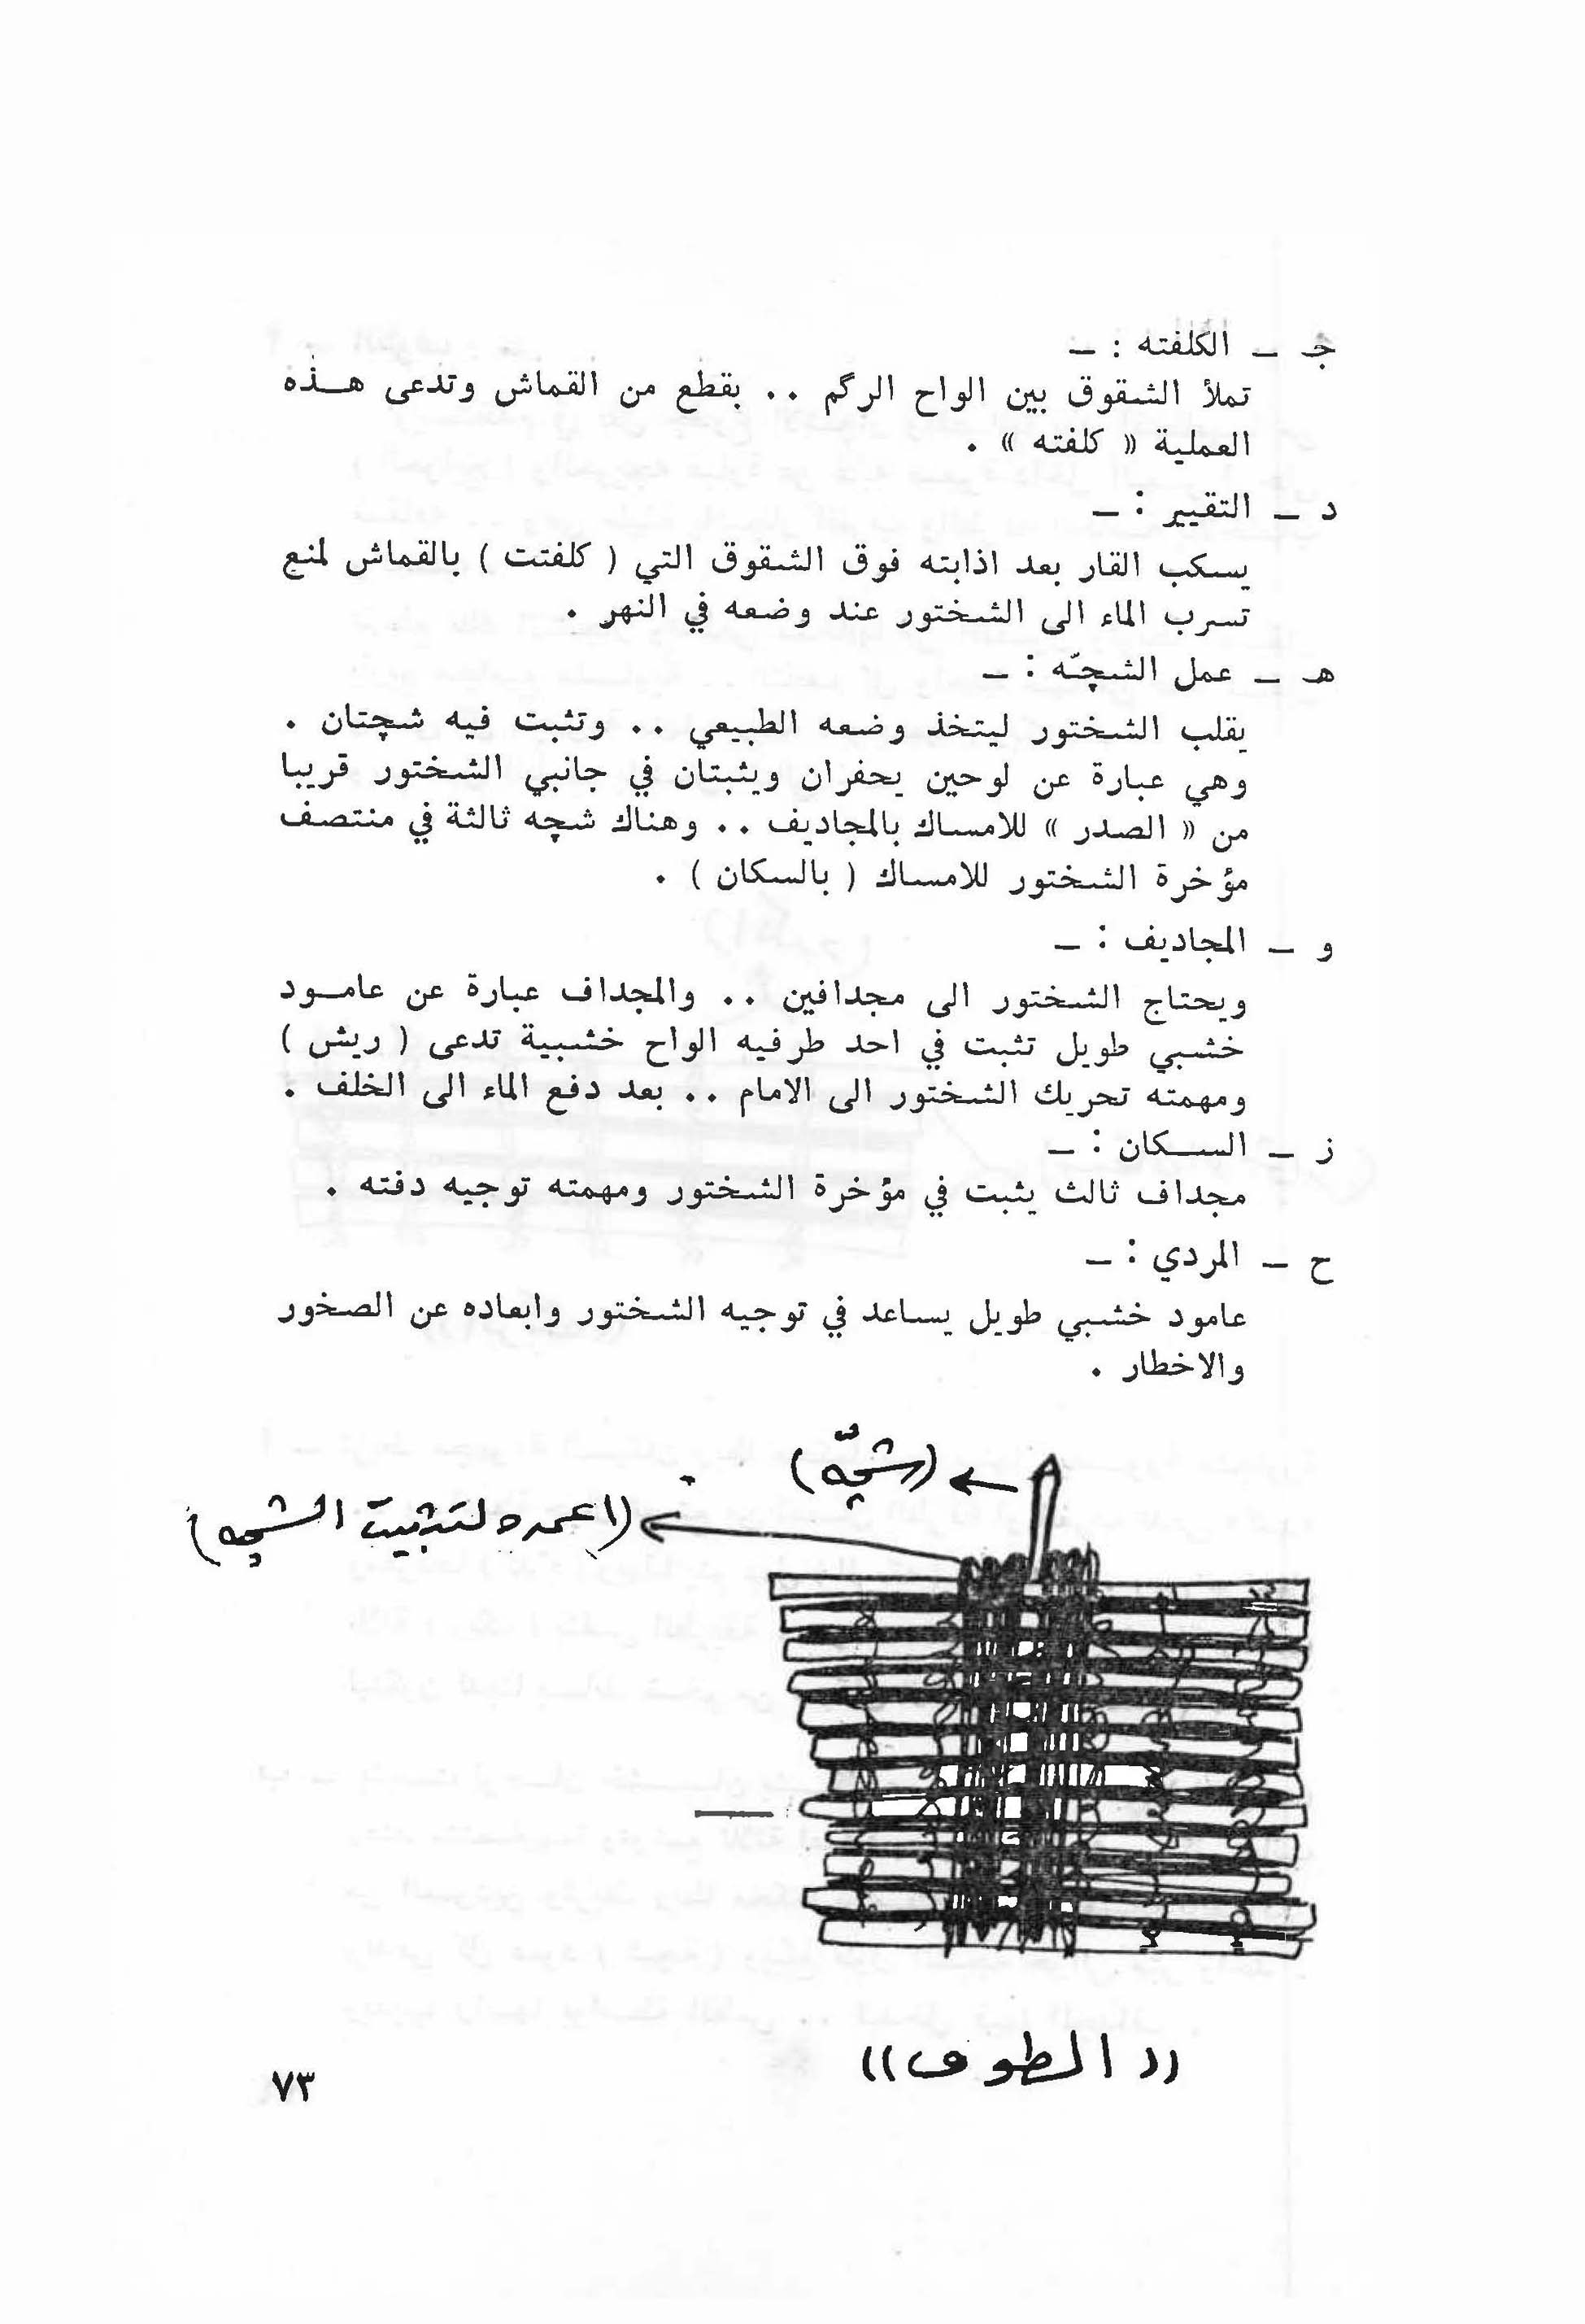 جـ ــ الكلفته : ــ
تملأ الشقوق بين الواح الرگم .. بقطع من القماش وتدعى هـذه
العملية « كلفته » .
د ــ التقيير : ــ
يسكب القار بعد اذابته فوق الشقوق التي ( كلفتت ) بالقماش لمنع
تسرب الماء الى الشختور عند وضعه في النهر .
هـ ــ عمل الشچّه : ــ
يقلب الشختور ليتخذ وضعه الطبيعي .. وتثبت فيه شچتان .
وهي عبارة عن لوحين يحفران ويثبتان في جانبي الشختور قريبا
من « الصدر » للامساك بالمجاديف .. وهناك شچه ثالثة في منتصف
مؤخرة الشختور للامساك ( بالسكان ) .
و ــ المجاديف : ــ
ويحتاج الشختور الى مجدافين .. والمجداف عبارة عن عامـود
خشبي طويل تثبت في احد طرفيه الواح خشبية تدعى ( ريش )
ومهمته تحريك الشختور الى الامام .. بعد دفع الماء الى الخلف .
ز ــ السـكان : ــ
مجداف ثالث يثبت في مؤخرة الشختور ومهمته توجيه دفته .
ح ــ المردي : ــ
عامود خشبي طويل يساعد في توجيه الشختور وابعاده عن الصخور
والاخطار .
(شچّه)
(اعمده لتثبيت الشچه)
« الطوف »
٧٣